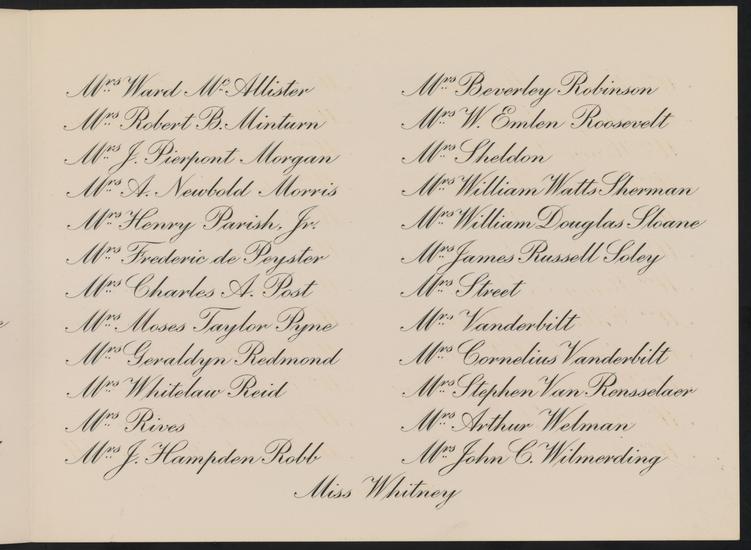 Mrs Ward McAllister
Mrs Robert B. Minturn
Mrs J. Pierpont Morgan
Mrs A. Newbold Morris
Mrs Henry Parish, Jr.
Mrs Frederic de Peyster
Mrs Charles A. Post
Mrs Moses Taylor Pyne
Mrs Geraldyn Redmond
Mrs Whitelaw Reid
Mrs Rives
Mrs J. Hampden Robb
Mrs Beverley Robinson
Mrs W. Emlen Roosevelt
Mrs Sheldon
Mrs William Watts Sherman
Mrs William Douglas Sloane
Mrs James Russell Soley
Mrs Street
Mrs Vanderbilt
Mrs Cornelius Vanderbilt
Mrs Stephen Van Rensselaer
Mrs Arthur Welman
Mrs John C. Wilmerding
Miss Whitney